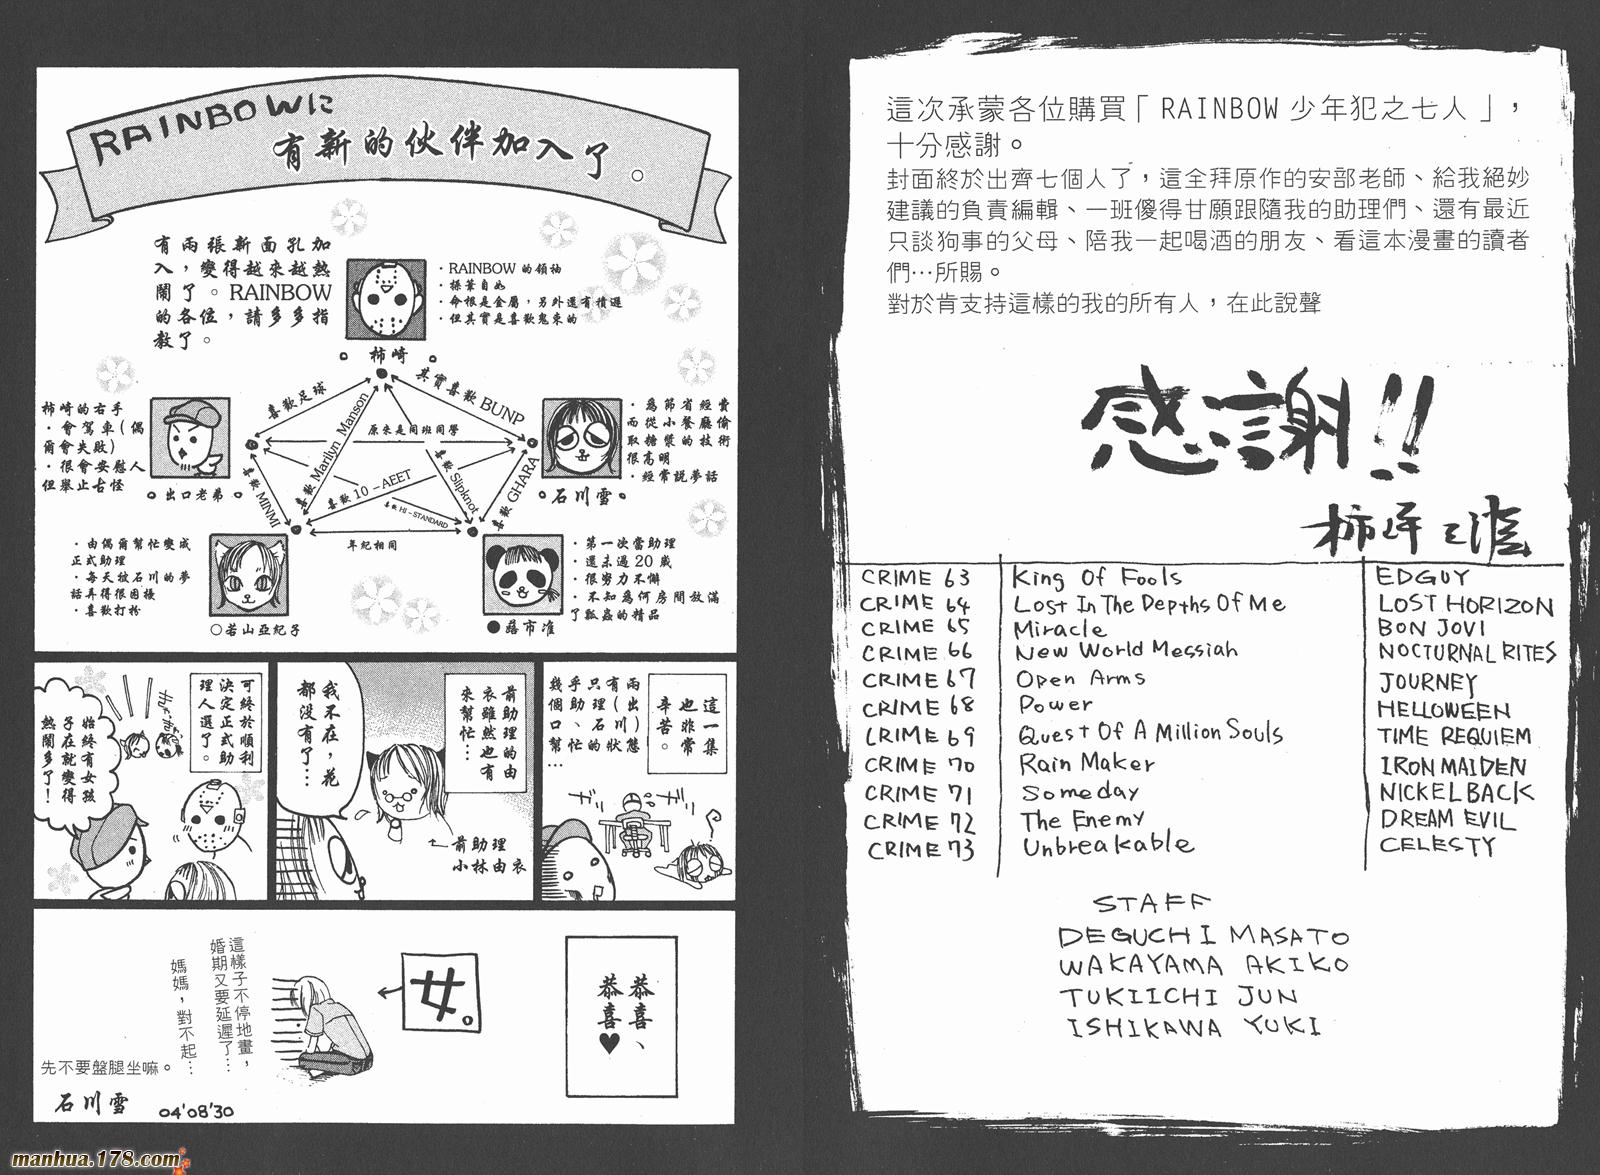 這次承蒙各位購買「RAINBOW 少年犯之七人」，
十分感謝。
封面終於出齊七個人了，這全拜原作的安部老師、給我絕妙
建議的負責編輯、一班傻得甘願跟隨我的助理們、還有最近
只談狗事的父母、陪我一起喝酒的朋友、看這本漫畫的讀者
們…所賜。
對於肯支持這樣的我的所有人，在此說聲
感謝!!
CRIME 63 King Of Fools EDGUY
CRIME 64 Lost In The Depths Of Me LOST HORIZON
CRIME 65 Miracle BON JOVI
CRIME 66 New World Messiah NOCTURNAL RITES
CRIME 67 Open Arms JOURNEY
CRIME 68 Power HELLOWEEN
CRIME 69 Quest Of A Million Souls TIME REQUIEM
CRIME 70 Rain Maker IRON MAIDEN
CRIME 71 Someday NICKELBACK
CRIME 72 The Enemy DREAM EVIL
CRIME 73 Unbreakable CELESTY
STAFF
DEGUCHI MASATO
WAKAYAMA AKIKO
TUKIICHI JUN
ISHIKAWA YUKI
RAINBOWに
有新的伙伴加入了。
有兩張新面孔加
入，變得越來越熱
鬧了。RAINBOW
的各位，請多多指
教了。
・RAINBOW的領袖
・操筆自如
・命根是金屬，另外還有積遲
・但其實是喜歡鬼束的
柿崎
柿崎的右手
・會駕車(偶
爾會失敗)
・很會安慰人
但舉止古怪
出口老弟
・為節省經費
而從小餐廳偷
取糖漿的技術
很高明
・經常説夢話
石川雪
喜歡足球
其實喜歡BUNP
喜歡Marilyn Manson
原來是同班同學
喜歡MINMI
喜歡10-AEET
喜歡HI-STANDARD
喜歡Slipknot
喜歡GHARA
年紀相同
・由偶爾幫忙變成
正式助理
・每天被石川的夢
話弄得很困擾
・喜歡打扮
○若山亞紀子
・第一次當助理
・還未過20歲
・很努力不懈
・不知為何房間放滿
了瓢蟲的精品
這一集
也非常
辛苦。
兩(出
有(川)態
只石狀
乎助理的
幾個口、忙
幫…
前助理的由
衣雖然也有
來幫忙…
我不在，花
都没有了…
←前助理
小林由衣
可終於順利
決定正式助
理人選了。
始終有女孩
子在就變得
熱鬧多了！
恭喜、
恭喜♥
女。
這樣子不停地畫，
婚期又要延遲了…
媽媽，對不起…
先不要盤腿坐嘛。
石川雪 04'08'30
manhua.178.com